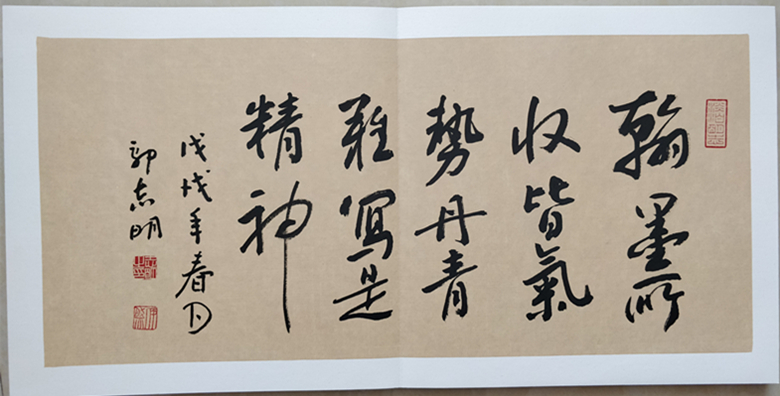 翰墨所
收皆氣
勢丹青
難寫是
精神
戊戌年春月
郭志明